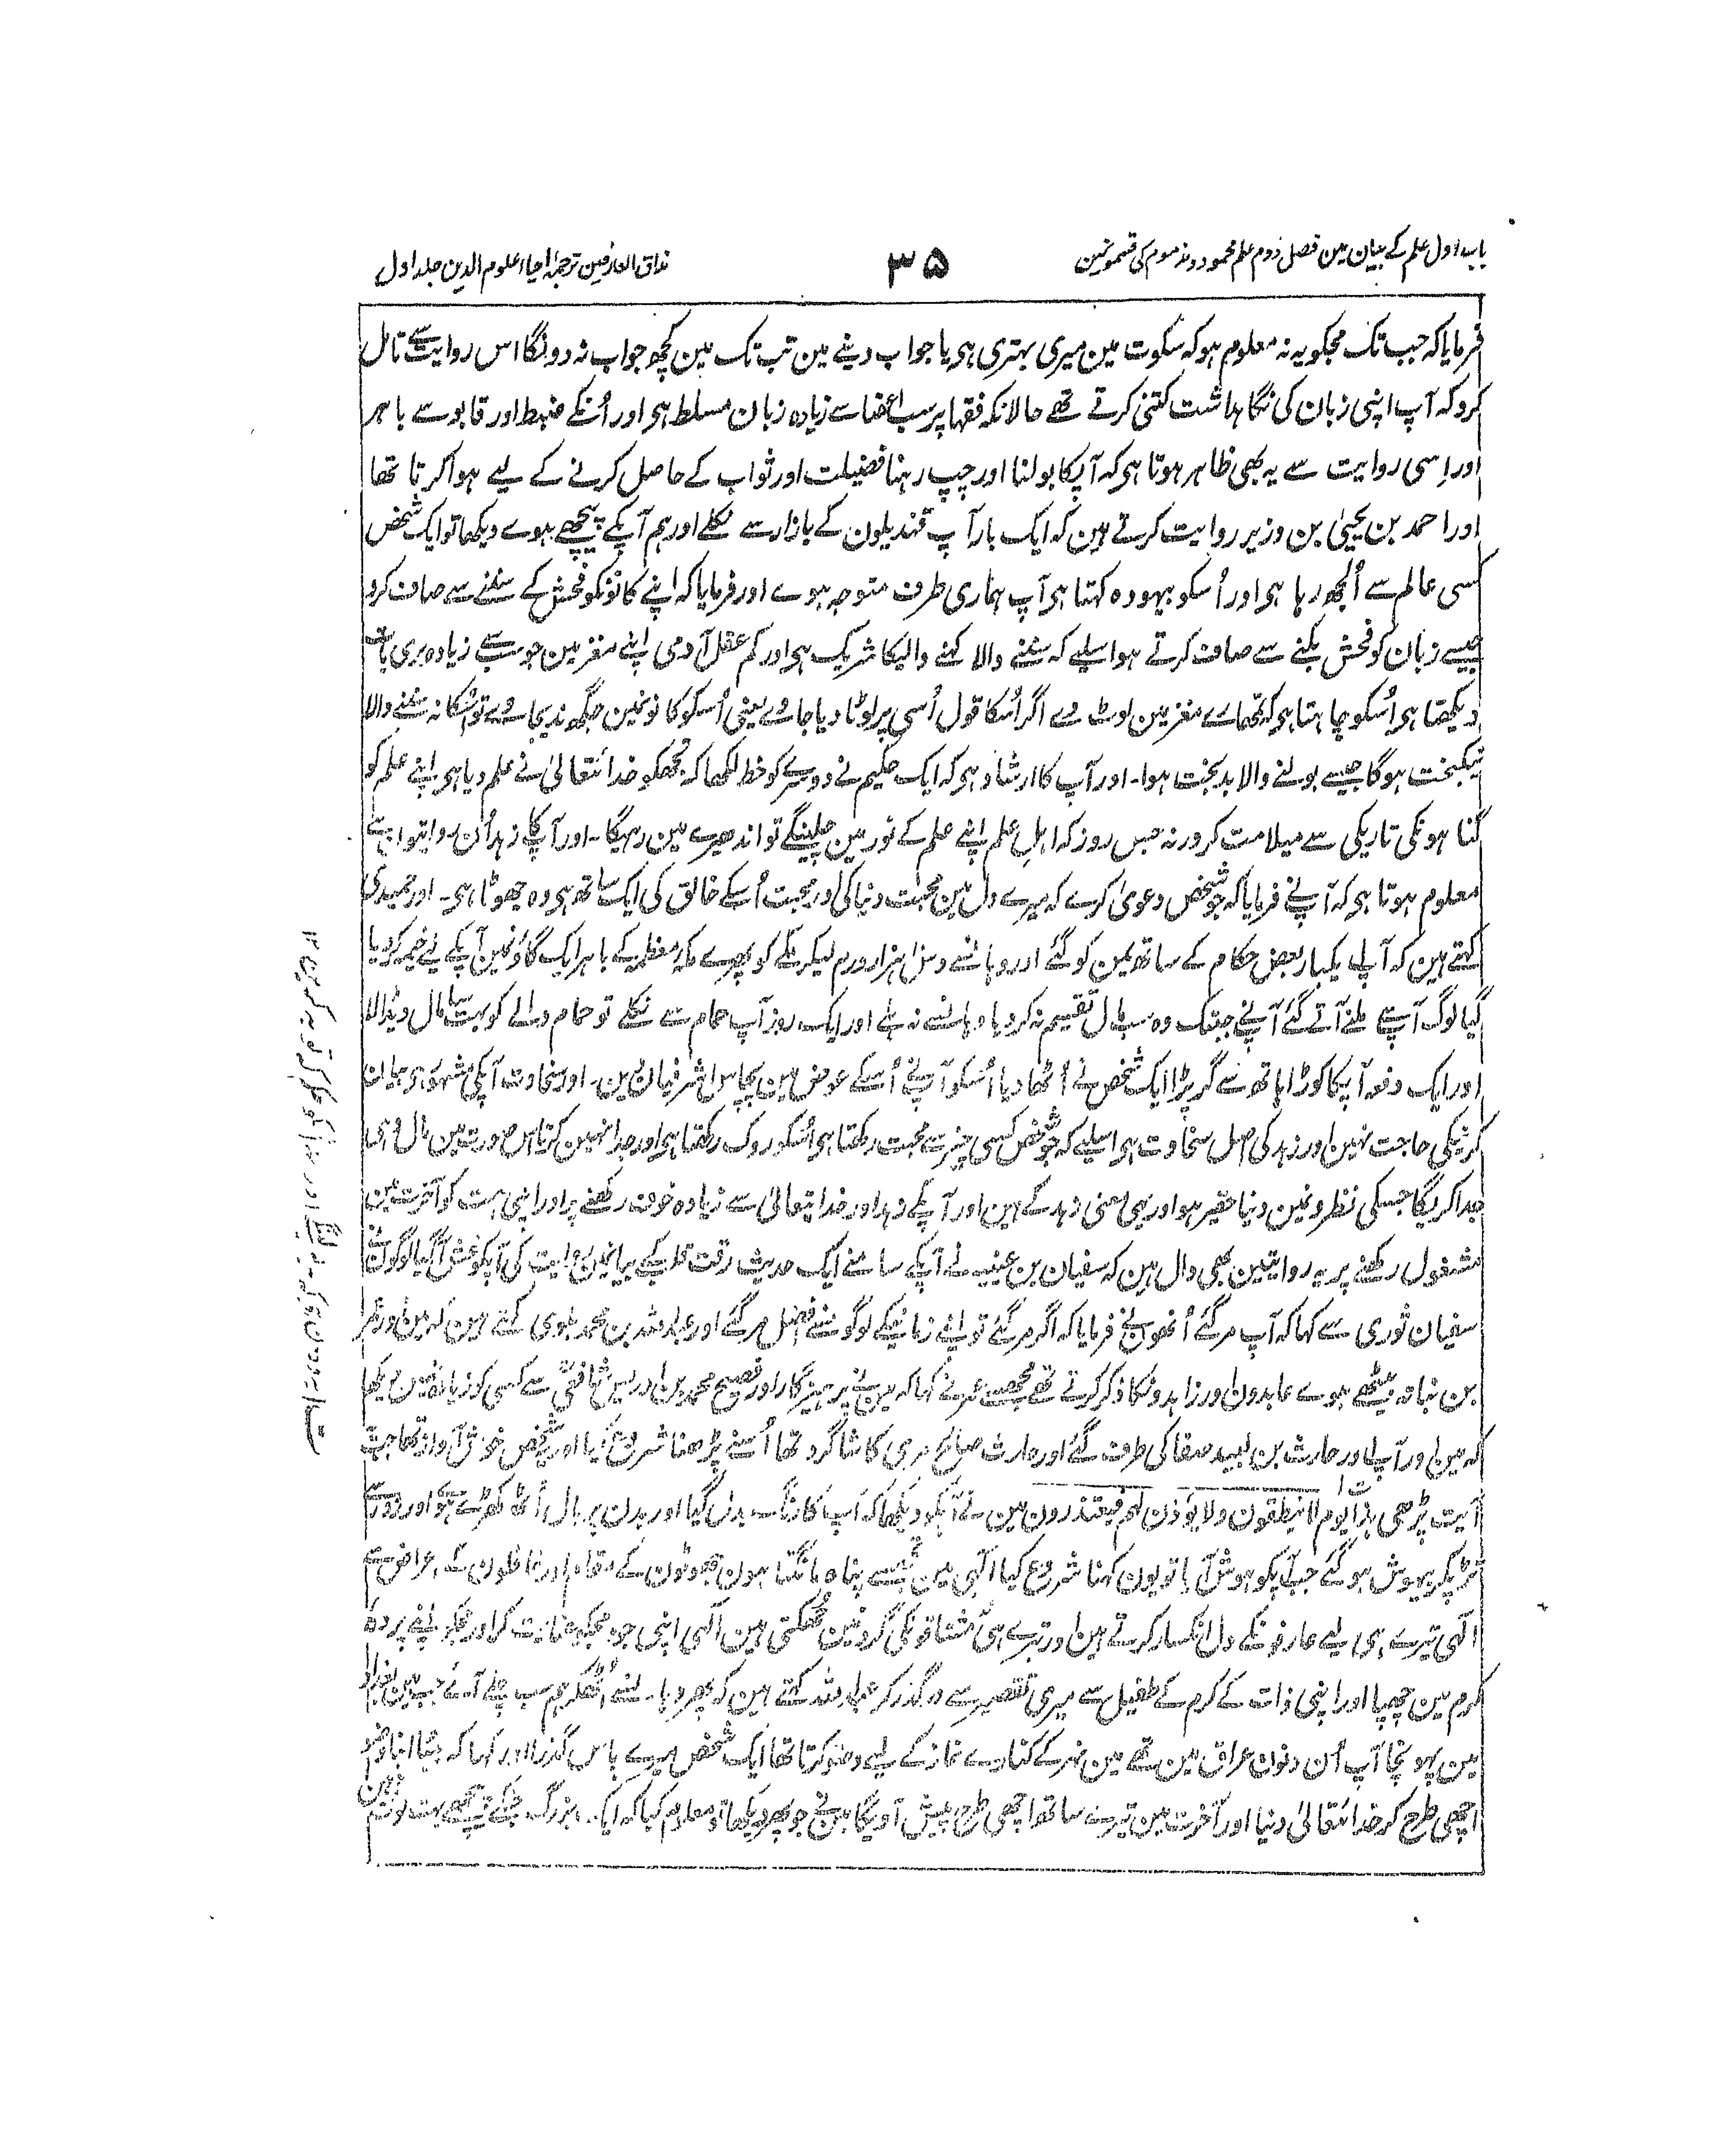 باب اول علم کے بیان مین فصل دوم علم محمود و مذموم کی قسمونمین
۳۵
مذاق العارفین ترجمۂ احیاء علوم الدین جلد اول
فرمایا کہ جب تک مجکو یہ نہ معلوم ہو کہ سکوت مین میری بہتری ہی یا جواب دینے مین تب تک مین کچھ جواب نہ دونگا اس روایت سے تامل
کرو کہ آپ اپنی زبان کی نگاہداشت کتنی کرتے تھے حالانکہ فقہا پر سب اعضا سے زیادہ زبان مسلط ہی اور اُنکے ضبط اور قابو سے باہر
اور اِسی روایت سے یہ بھی ظاہر ہوتا ہی کہ آپکا بولنا اور چپ رہنا فضیلت اور ثواب کے حاصل کرنے کے لیے ہوا کرتا تھا
اور احمد بن یحییٰ بن وزیر روایت کرتے ہین کہ ایک بار آپ قندیلون کے بازار سے نکلے اور ہم آپکے پیچھے ہوے دیکھا تو ایک شخص
کسی عالم سے اُلجھ رہا ہی اور اُسکو بیہودہ کہتا ہی آپ ہماری طرف متوجہ ہوے اور فرمایا کہ اپنے کانونکو فحش کے سننے سے صاف کرو
جیسے زبان کو فحش بکنے سے صاف کرتے ہو اسلیے کہ سننے والا کہنے والیکا شریک ہی اور کم عقل آدمی اپنے مغز مین جو سب سے زیادہ بری بات
دیکھتا ہی اُسکو چاہتا ہی کہ تمھارے مغز مین لوٹ دے اگر اُسکا قول اُسی پر لوٹا دیا جاوے یعنی اُسکو کانونمین جگھ ندیجاوے تو اُسکا نہ سننے والا
نیکبخت ہوگا جیسے بولنے والا بدبخت ہوا۔ اور آپ کا ارشاد ہی کہ ایک حکیم نے دوسرے کو خط لکھا کہ تجھکو خدا تعالیٰ نے علم دیا ہی اپنے علم کو
گناہونکی تاریکی سے میلا مت کر ورنہ جس روز کہ اہل علم اپنے علم کے نور مین چلینگے تو اندھیرے مین رہیگا۔ اور آپکا زہد اُن روایتوں سے
معلوم ہوتا ہی کہ آپنے فرمایا کہ جو شخص دعویٰ کرے کہ میرے دل مین محبت دنیا کی اور محبت اُسکے خالق کی ایک ساتھ ہی وہ جھوٹا ہی۔ اور حمیدی
کہتے ہین کہ آپ ایکبار بعض حکام کے ساتھ یمن کو گئے اور وہانسے دس ہزار درم لیکر مکے کو پھرے مکہ معظمہ کے باہر ایک گاؤنمین آپکے لیے خیمہ کردیا
گیا لوگ آپسے ملنے آتے گئے آپنے جبتک وہ سب مال تقسیم نہ کردیا وہانسے نہ ہٹے اور ایک روز آپ حمام سے نکلے تو حمام والے کو بہت سا مال دیڈالا
اور ایک دفعہ آپکا کوڑا ہاتھ سے گر پڑا ایک شخص نے اُٹھا دیا اُسکو آپنے اُسکے عوض مین پچاس اشرفیان دین۔ اور سخاوت آپکی مشہور ہی بیان
کرنیکی حاجت نہین اور زہد کی اصل سخاوت ہی اسلیے کہ جو شخص کسی چیز سے محبت رکھتا ہی اُسکو روک رکھتا ہی اور جدا نہین کرتا اس صورت مین مال وہی
جدا کریگا جسکی نظرونمین دنیا حقیر ہو اور یہی معنی زہد کے ہین اور آپکے زہد اور خدا تعالیٰ سے زیادہ خوف رکھنے پر اور اپنی ہمت کو آخرت مین
مشغول رکھنے پر یہ روایتین بھی دال ہین کہ سفیان بن عیینہ نے آپکے سامنے ایک حدیث رقت قلب کے بیانمین روایت کی آپکو غش آگیا لوگون نے
سفیان ثوری سے کہا کہ آپ مرگئے اُنھون نے فرمایا کہ اگر مرگئے تو اپنے زمانیکے لوگونسے افضل مرگئے اور عبداللہ بن محمد بلوی کہتے ہین کہ مین اور عمر
بن نباتہ بیٹھے ہوے عابدون اور زاہدونکا ذکر کرتے تھے مجھسے عمر نے کہا کہ مین نے پرہیزگار اور فصیح محمد بن ادریس شافعیؒ سے کسی کو زیادہ نہین دیکھا
کہ مین اور آپ اور حارث بن لبید صفا کی طرف گئے اور حارث صالح مری کا شاگرد تھا اُسنے پڑھنا شروع کیا اور یہ شخص خوش آواز تھا جب
آیت پڑھی ہذا یوم لا ینطقون ولا یؤذن لہم فیعتذرون مین نے آپکو دیکھا کہ آپ کا رنگ بدل گیا اور بدن پر بال اُٹھ کھڑے ہوے اور زور سے
تڑپکر بیہوش ہوگئے جب آپکو ہوش آیا تو یون کہنا شروع کیا الٰہی مین تجھسے پناہ مانگتا ہون جھوٹون کے مقام اور غافلون کے اعراض سے
الٰہی تیرے ہی لیے عارفونکے دل انکسار کرتے ہین اور تیرے ہی مشتاقونکی گردنین جھکتی ہین الٰہی اپنی جود مجکو عنایت کر اور مجکو اپنے پردہ
کرم مین چھپا اور اپنی ذات کے کرم کے طفیل سے میری تقصیر سے درگذر کر عبداللہ کہتے ہین کہ پھر وہانسے اُٹھکر ہم سب چلے آئے جب مین بغداد
مین پہونچا آپ اُن دنون عراق مین تھے مین نہر کے کنارے نماز کے لیے وضو کرتا تھا ایک شخص میرے پاس گذرا اور کہا کہ بیٹا اپنا وضو
اچھی طرح کر خدا تعالیٰ دنیا اور آخرت مین تیرے ساتھ اچھی طرح پیش آویگا مین نے جو پھر دیکھا تو معلوم کیا کہ ایک بزرگ جنکے پیچھے بہت لوگ ہین